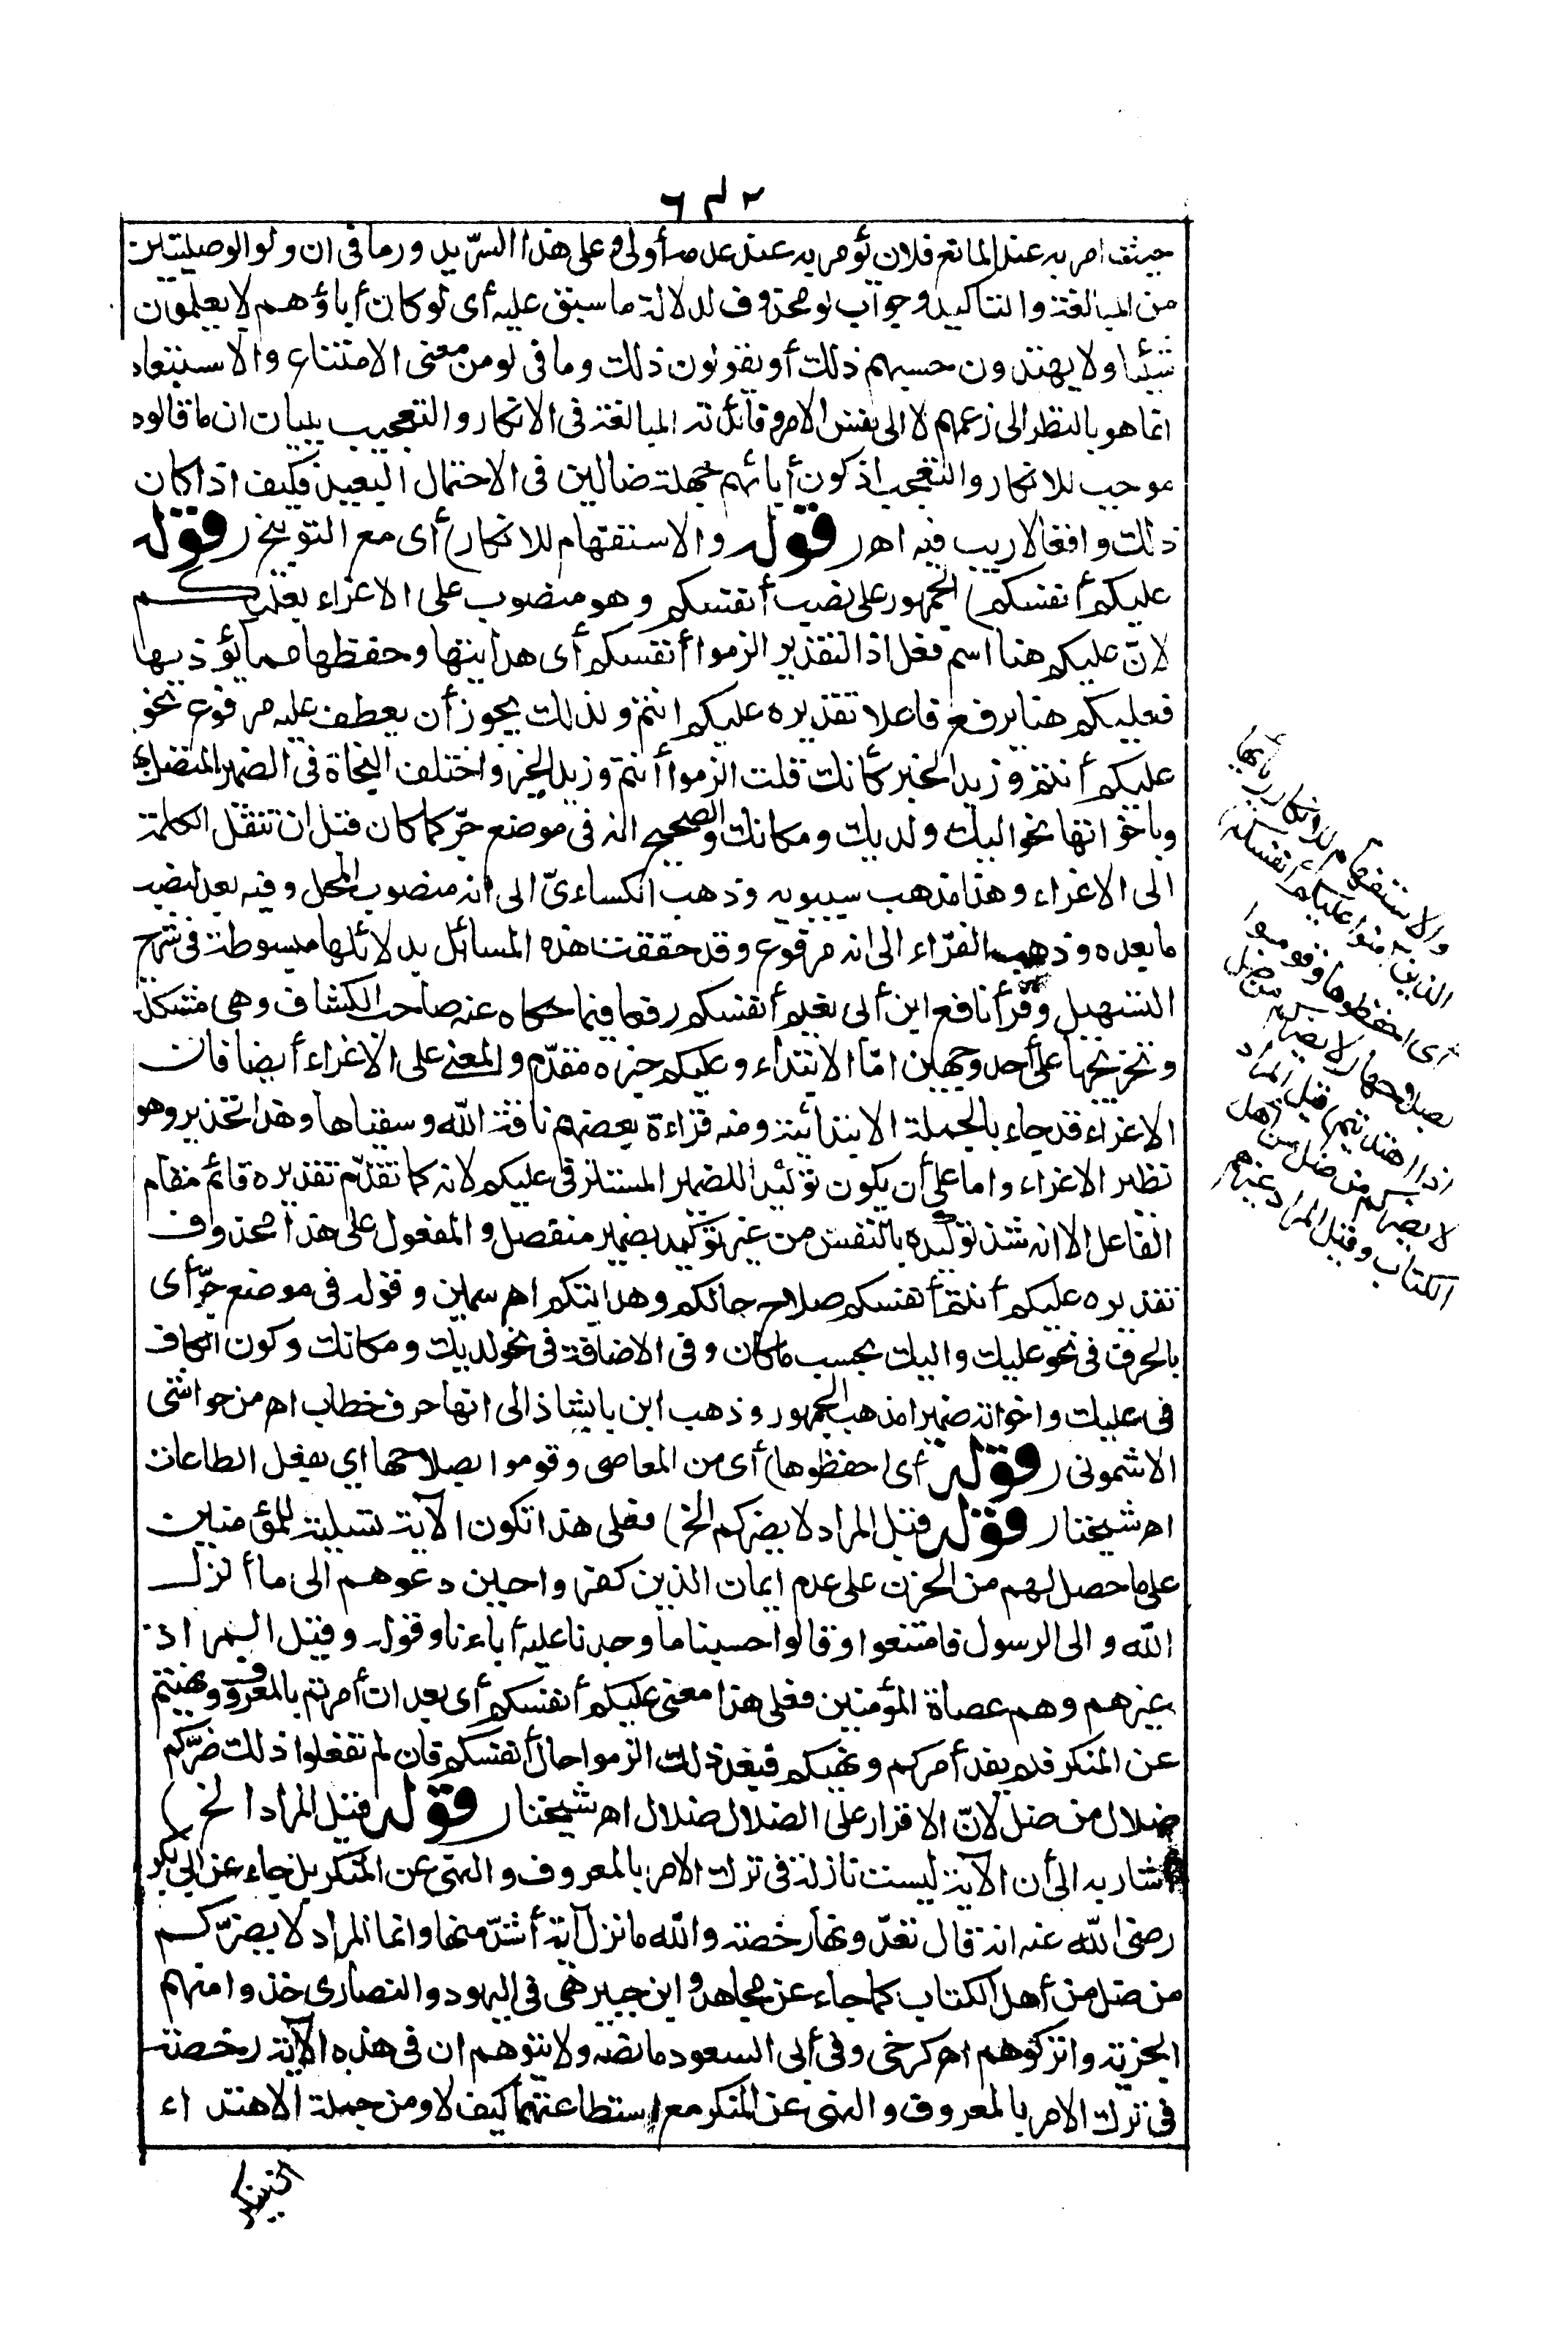 ٦٤٢
حيث امر به عند المانع فلان تؤمر به عند عدمه أولى وعلى هذا السر يدور ما فى ان ولو الوصليتين
من المبالغة والتاكيد وجواب لو محذوف لدلالة ما سبق عليه أى لو كان أباؤهم لا يعلمون
شيئا ولا يهتدون حسبهم ذلك أو يقولون ذلك وما فى لو من معنى الامتناع والاستبعاد
انما هو بالنظر الى زعمهم لا الى نفس الامر وفائدته المبالغة فى الانكار والتعجيب ببيان ان ما قالوه
موجب للانكار والتعجيب اذ كون أبائهم جهلة ضالين فى الاحتمال البعيد فكيف اذا كان
ذلك واقعا لا ريب فيه اهـ (قوله والاستفهام للانكار) أى مع التوبيخ (قوله
عليكم أنفسكم) الجمهور على نصب أنفسكم وهو منصوب على الاغراء بعليكم
لانّ عليكم هنا اسم فعل اذ التقدير الزموا أنفسكم أى هدايتها وحفظها مما يؤذيها
فعليكم هنا يرفع فاعلا تقديره عليكم انتم ولذلك يجوز أن يعطف عليه مرفوع نحو
عليكم أنتم وزيد الخير كأنك قلت الزموا أنتم وزيد الخير واختلف النحاة فى الضمير المتصل بها
وباخواتها نحو اليك ولديك ومكانك والصحيح انه فى موضع جرّ كما كان قبل ان تنقل الكلمة
الى الاغراء وهذا مذهب سيبويه وذهب الكساءىّ الى انه منصوب المحل وفيه بعد لنصب
ما بعده وذهب الفرّاء الى انه مرفوع وقد حققت هذه المسائل بدلائلها مبسوطة فى شرح
التسهيل وقرأ نافع ابن أبى نعيم أنفسكم رفعا فيما حكاه عنه صاحب الكشاف وهى مشكلة
وتخريجها على أحد وجهين امّا الابتداء وعليكم خبره مقدّم والمعنى على الاغراء أيضا فان
الاغراء قد جاء بالجملة الابتدائية ومنه قراءة بعضهم ناقة الله وسقياها وهذا تحذير وهو
نظير الاغراء واما على أن يكون توكيدا للضمير المستتر فى عليكم لانه كما تقدّم تقديره قائم مقام
الفاعل الا انه شذ توكيده بالنفس من غير توكيد بضمير منفصل والمفعول على هذا محذوف
تقديره عليكم أنتم أنفسكم صلاح حالكم وهدايتكم اهـ سمين وقوله فى موضع جرّ أى
بالحرف فى نحو عليك واليك بحسب ما كان وفى الاضافة فى نحو لديك ومكانك وكون الكاف
فى عليك واخواته ضميرا مذهب الجمهور وذهب ابن بابشاذ الى انها حرف خطاب اهـ من حواشى
الاشمونى (قوله أى احفظوها) أى من المعاصى وقوموا بصلاحها اي بفعل الطاعات
اهـ شيخنا (قوله قيل المراد لا يضركم الخ) فعلى هذا تكون الآية تسلية للمؤمنين
على ما حصل لهم من الحزن على عدم ايمان الذين كفروا حين دعوهم الى ما أنزل
الله والى الرسول فامتنعوا وقالوا حسبنا ما وجدنا عليه أباءنا وقوله وقيل المراد
غيرهم وهم عصاة المؤمنين فعلى هذا معنى عليكم أنفسكم أى بعد ان أمرتم بالمعروف ونهيتم
عن المنكر فلم يفد أمركم ونهيكم فبعد ذلك الزموا حال أنفسكم فان لم تفعلوا ذلك ضرّكم
ضلال من ضل لانّ الاقرار على الضلال ضلال اهـ شيخنا (قوله قيل المراد الخ)
أشار به الى أن الآية ليست نازلة فى ترك الامر بالمعروف والنهى عن المنكر بل جاء عن ابى بكر
رضى الله عنه انه قال تعدّونها رخصة والله ما نزل آية أشدّ منها وانما المراد لا يضرّكم
من ضل من أهل الكتاب كما جاء عن مجاهد وابن جبير هى فى اليهود والنصارى خذوا منهم
الجزية واتركوهم اهـ كرخى وفى أبى السعود ما نصه ولا يتوهم ان فى هذه الآية رخصة
فى ترك الامر بالمعروف والنهى عن المنكر مع استطاعتهما كيف لا ومن جملة الاهتداء
والاستفهام للانكار (يا أيها
الذين آمنوا عليكم أنفسكم)
أى احفظوها وقوموا
بصلاحها (لا يضركم من ضل
اذا اهتديتم) قيل المراد
لا يضركم من ضل من أهل
الكتاب وقيل المراد غيرهم